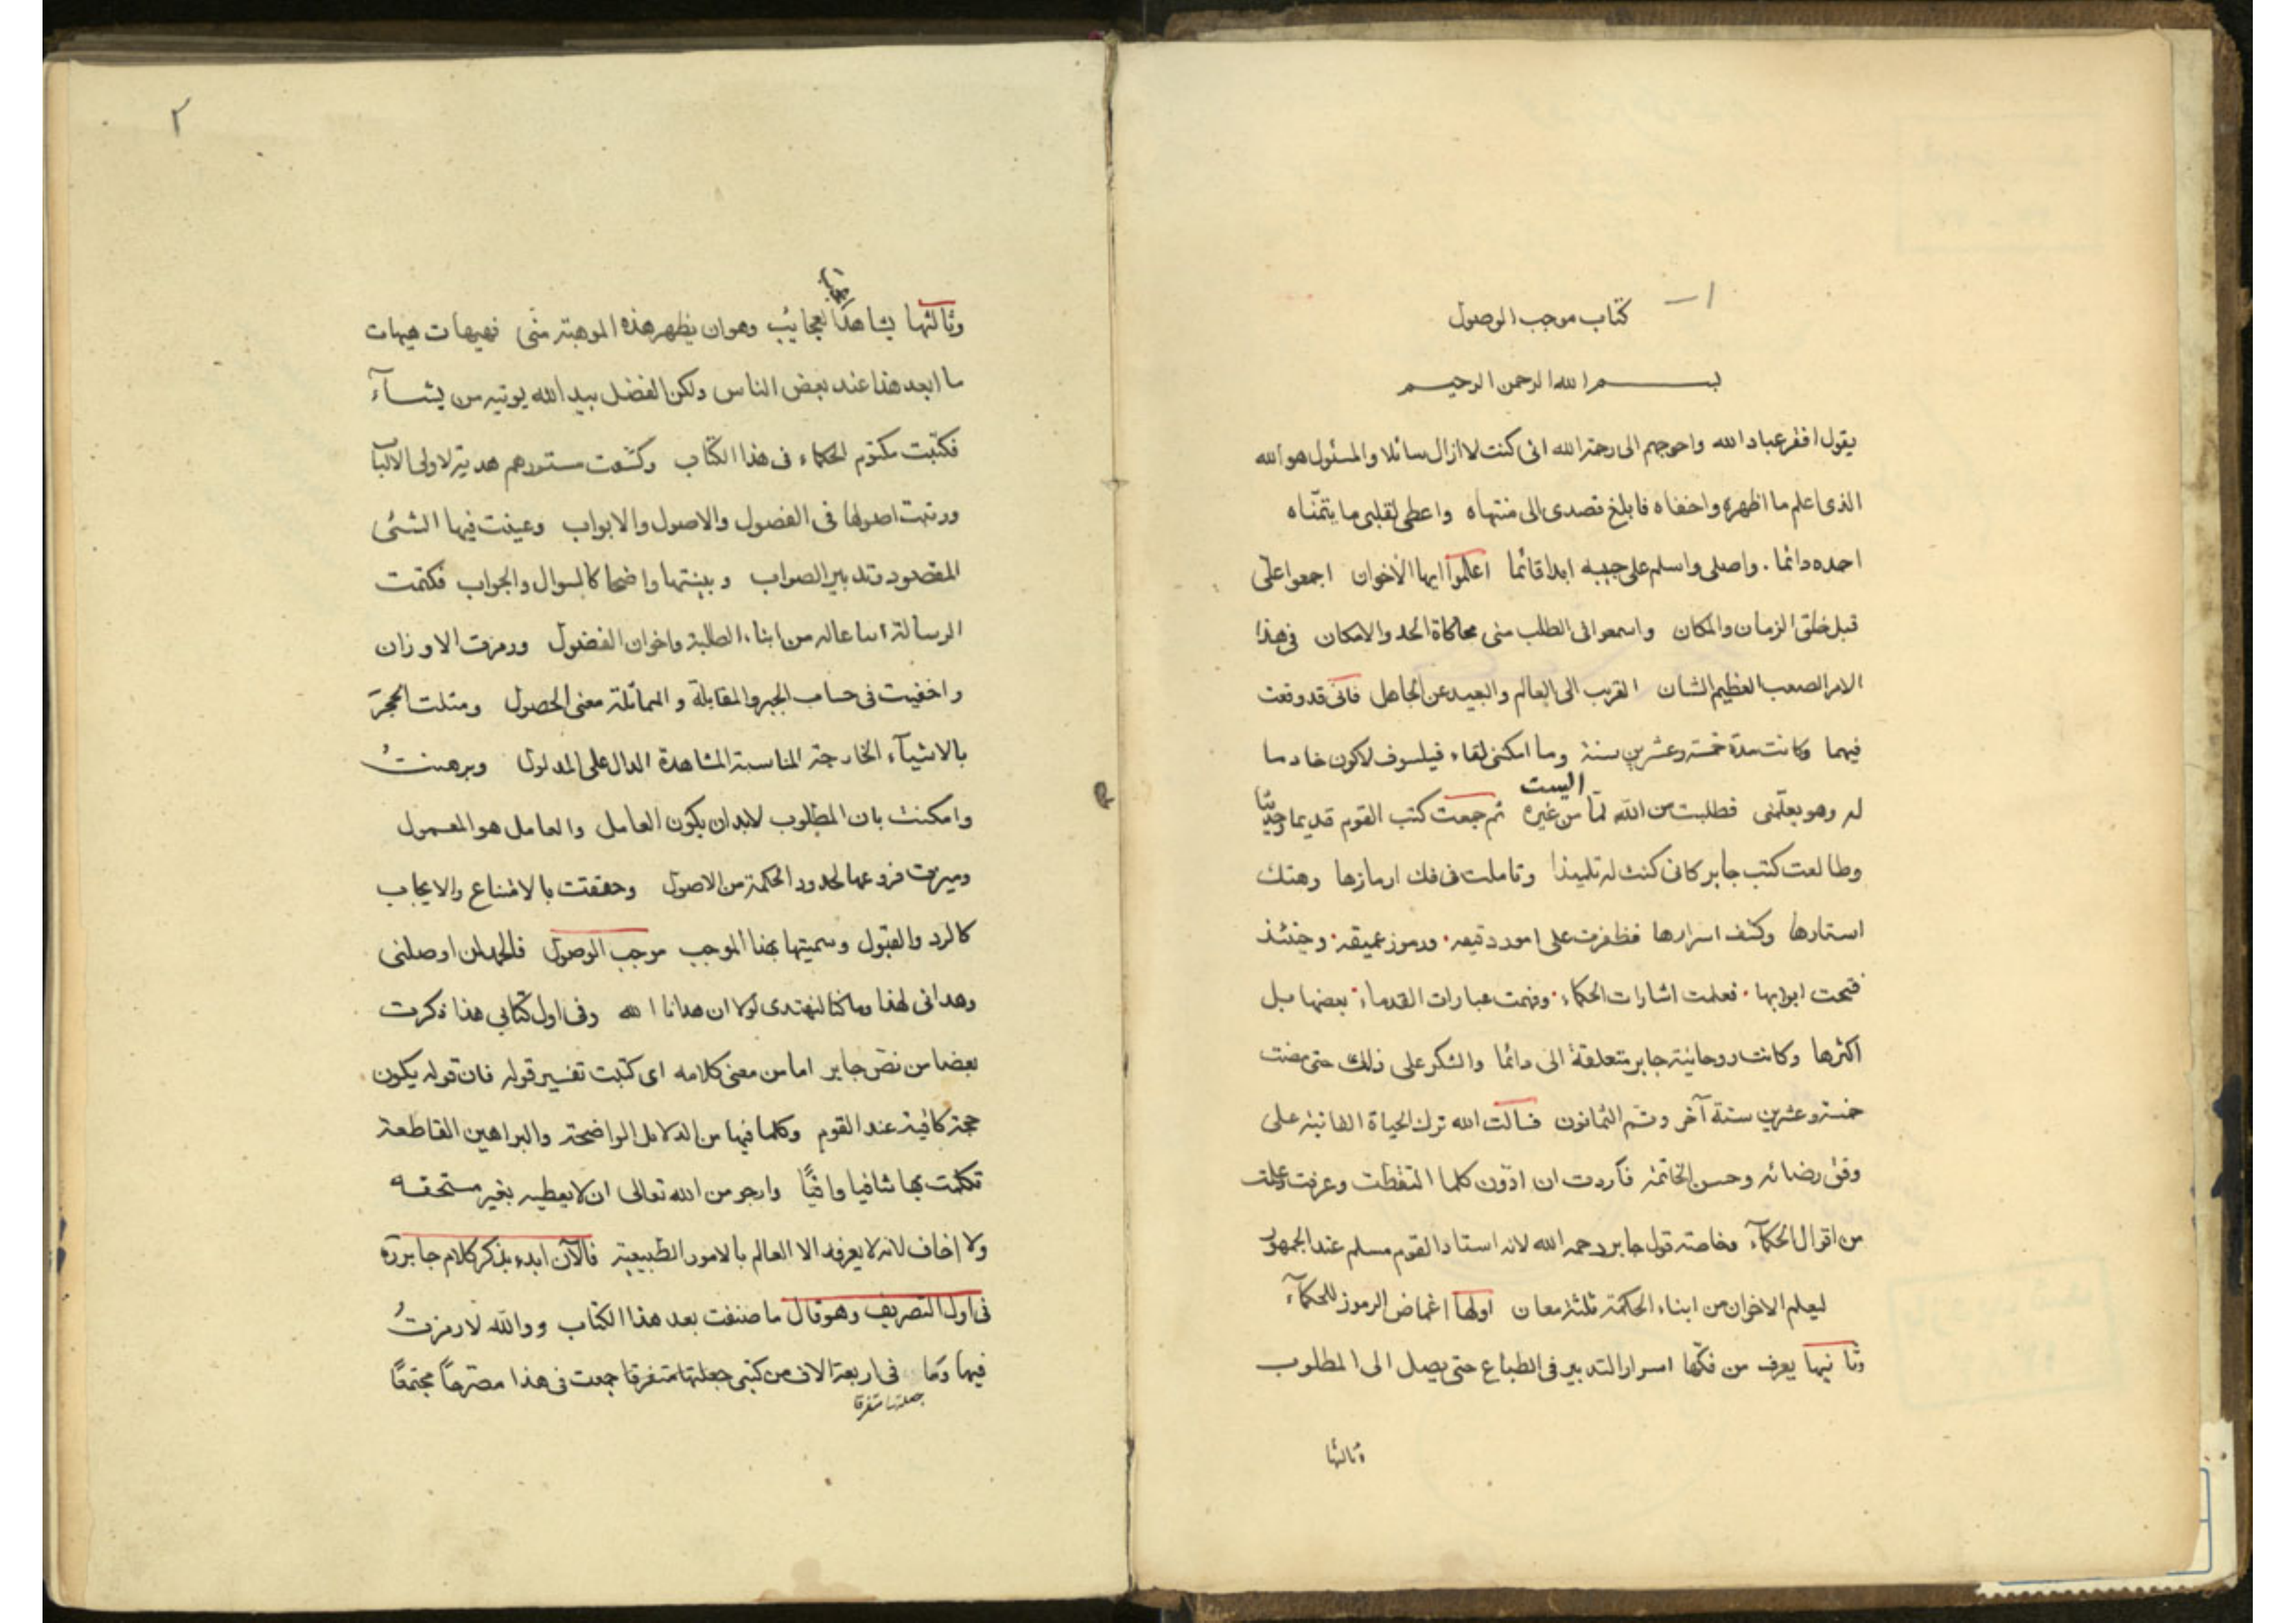 كتاب موجب الوصول
بسم الله الرحمن الرحيم
يقول افقر عباد الله واحوجهم الى رحمة الله انى كنت لا ازال سائلا والمسئول هو الله
الذى اعلم ما اظهره واخفاه فابلغ قصدى الى منتهاه واعطى لقلبى ما يتمنّاه
احمده دائما . واصلى واسلم على حبيبه ابدا قائما اعلموا ايها الاخوان اجمعوا على
قبل خلق الزمان والمكان واسمعوا فى الطلب منى محاكاة الحد والامكان فى هذا
الامر الصعب العظيم الشان القريب الى العالم والبعيد عن الجاهل فانى قد وقعت
فيهما وكانت مدة خمسة وعشرين سنة وما امكننى لقاء فيلسوف لاكون خادما
له وهو يعلّمنى فطلبت من الله لمّا من غيره اليست ثم جمعت كتب القوم قديما وحديثا
وطالعت كتب جابر كانى كنت له تلميذا وتاملت فى فك ارمازها وهتك
استارها وكشف اسرارها فظفرت على امور دقيقه . ورموز عميقه . وحينئذ
فتحت ابوابها . فعلمت اشارات الحكماء . وفهمت عبارات القدماء . بعضها مبل
اكثرها وكانت روحانية جابر متعلقة الى دائما والشكر على ذلك حتى مضت
خمسة وعشرين سنة آخر وتم الثمانون فسالت الله ترك الحياة الفانية على
وفق رضائه وحسن الخاتمة فاردت ان ادوّن كلما التقطت وعرفت وعلمت
من اقوال الحكمآء وخاصة قول جابر رحمه الله لانه استاد القوم مسلم عند الجمهور
ليعلم الاخوان من ابناء الحكمة ثلثة معان اولها اغماض الرموز للحكمآء
وثانيها يعرف من فكّها اسرار التدبير فى الطباع حتى يصل الى المطلوب
وثالثها
٢
وثالثها يشاهد العجايب وهو ان يظهر هذه الموهبة منّى فهيهات هيهات
ما ابعد هذا عند بعض الناس ولكن الفضل بيد الله يوتيه من يشآء
فكتبت مكتوم الحكماء فى هذا الكتاب وكشفت ستورهم هدية لاولى الالباب
ورتبت اصولها فى الفصول والاصول والابواب وعينت فيها الشئى
المقصود وتدبير الصواب وبينتها واضحا كالسوال والجواب فكتمت
الرسالة من ابناء الطلبة واخوان الفضول ورمزت الاوزان
واخفيت فى حساب الجبر والمقابلة والمماثلة معنى الحصول ومثلت الحجر
بالاشيآء الخارجة المناسبة المشاهدة الدال على المدلول وبرهنتُ
وامكنت بان المطلوب لابد ان يكون العامل والعامل هو المعمول
وميزت فروعها لحدود الحكمة من الاصول وحققت بالامتناع والايجاب
كالرد والقبول وسميتها بهذا الموجب موجب الوصول فالحمد لمن اوصلنى
وهدانى لهذا وما كنا لنهتدى لولا ان هدانا الله وفى اول كتابى هذا ذكرت
بعضا من نصّ جابر اما من معنى كلامه اى كتبت تفسير قوله فان قوله يكون
حجة كافية عند القوم وكلما فيها من الدلائل الواضحة والبراهين القاطعة
تكلمت بها شافيا وافيًا وارجو من الله تعالى ان لا يعطيه بغير مستحقه
ولا اخاف لانه لا يعرفه الا العالم بالامور الطبيعية فالآن ابدء بذكر كلام جابر ره
فى اول التصريف وهو قال ما صنفت بعد هذا الكتاب ووالله لا رمزتُ
فيها وما فى اربعة الاف من كتبى جعلتها متفرقا جمعت فى هذا مصرحاً مجتمعًا
جعلتها متفرقا